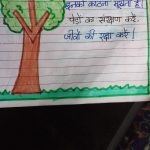 इनको काटना मूर्खता है।
पेड़ों का संरक्षण करें,
जीवों की रक्षा करें।